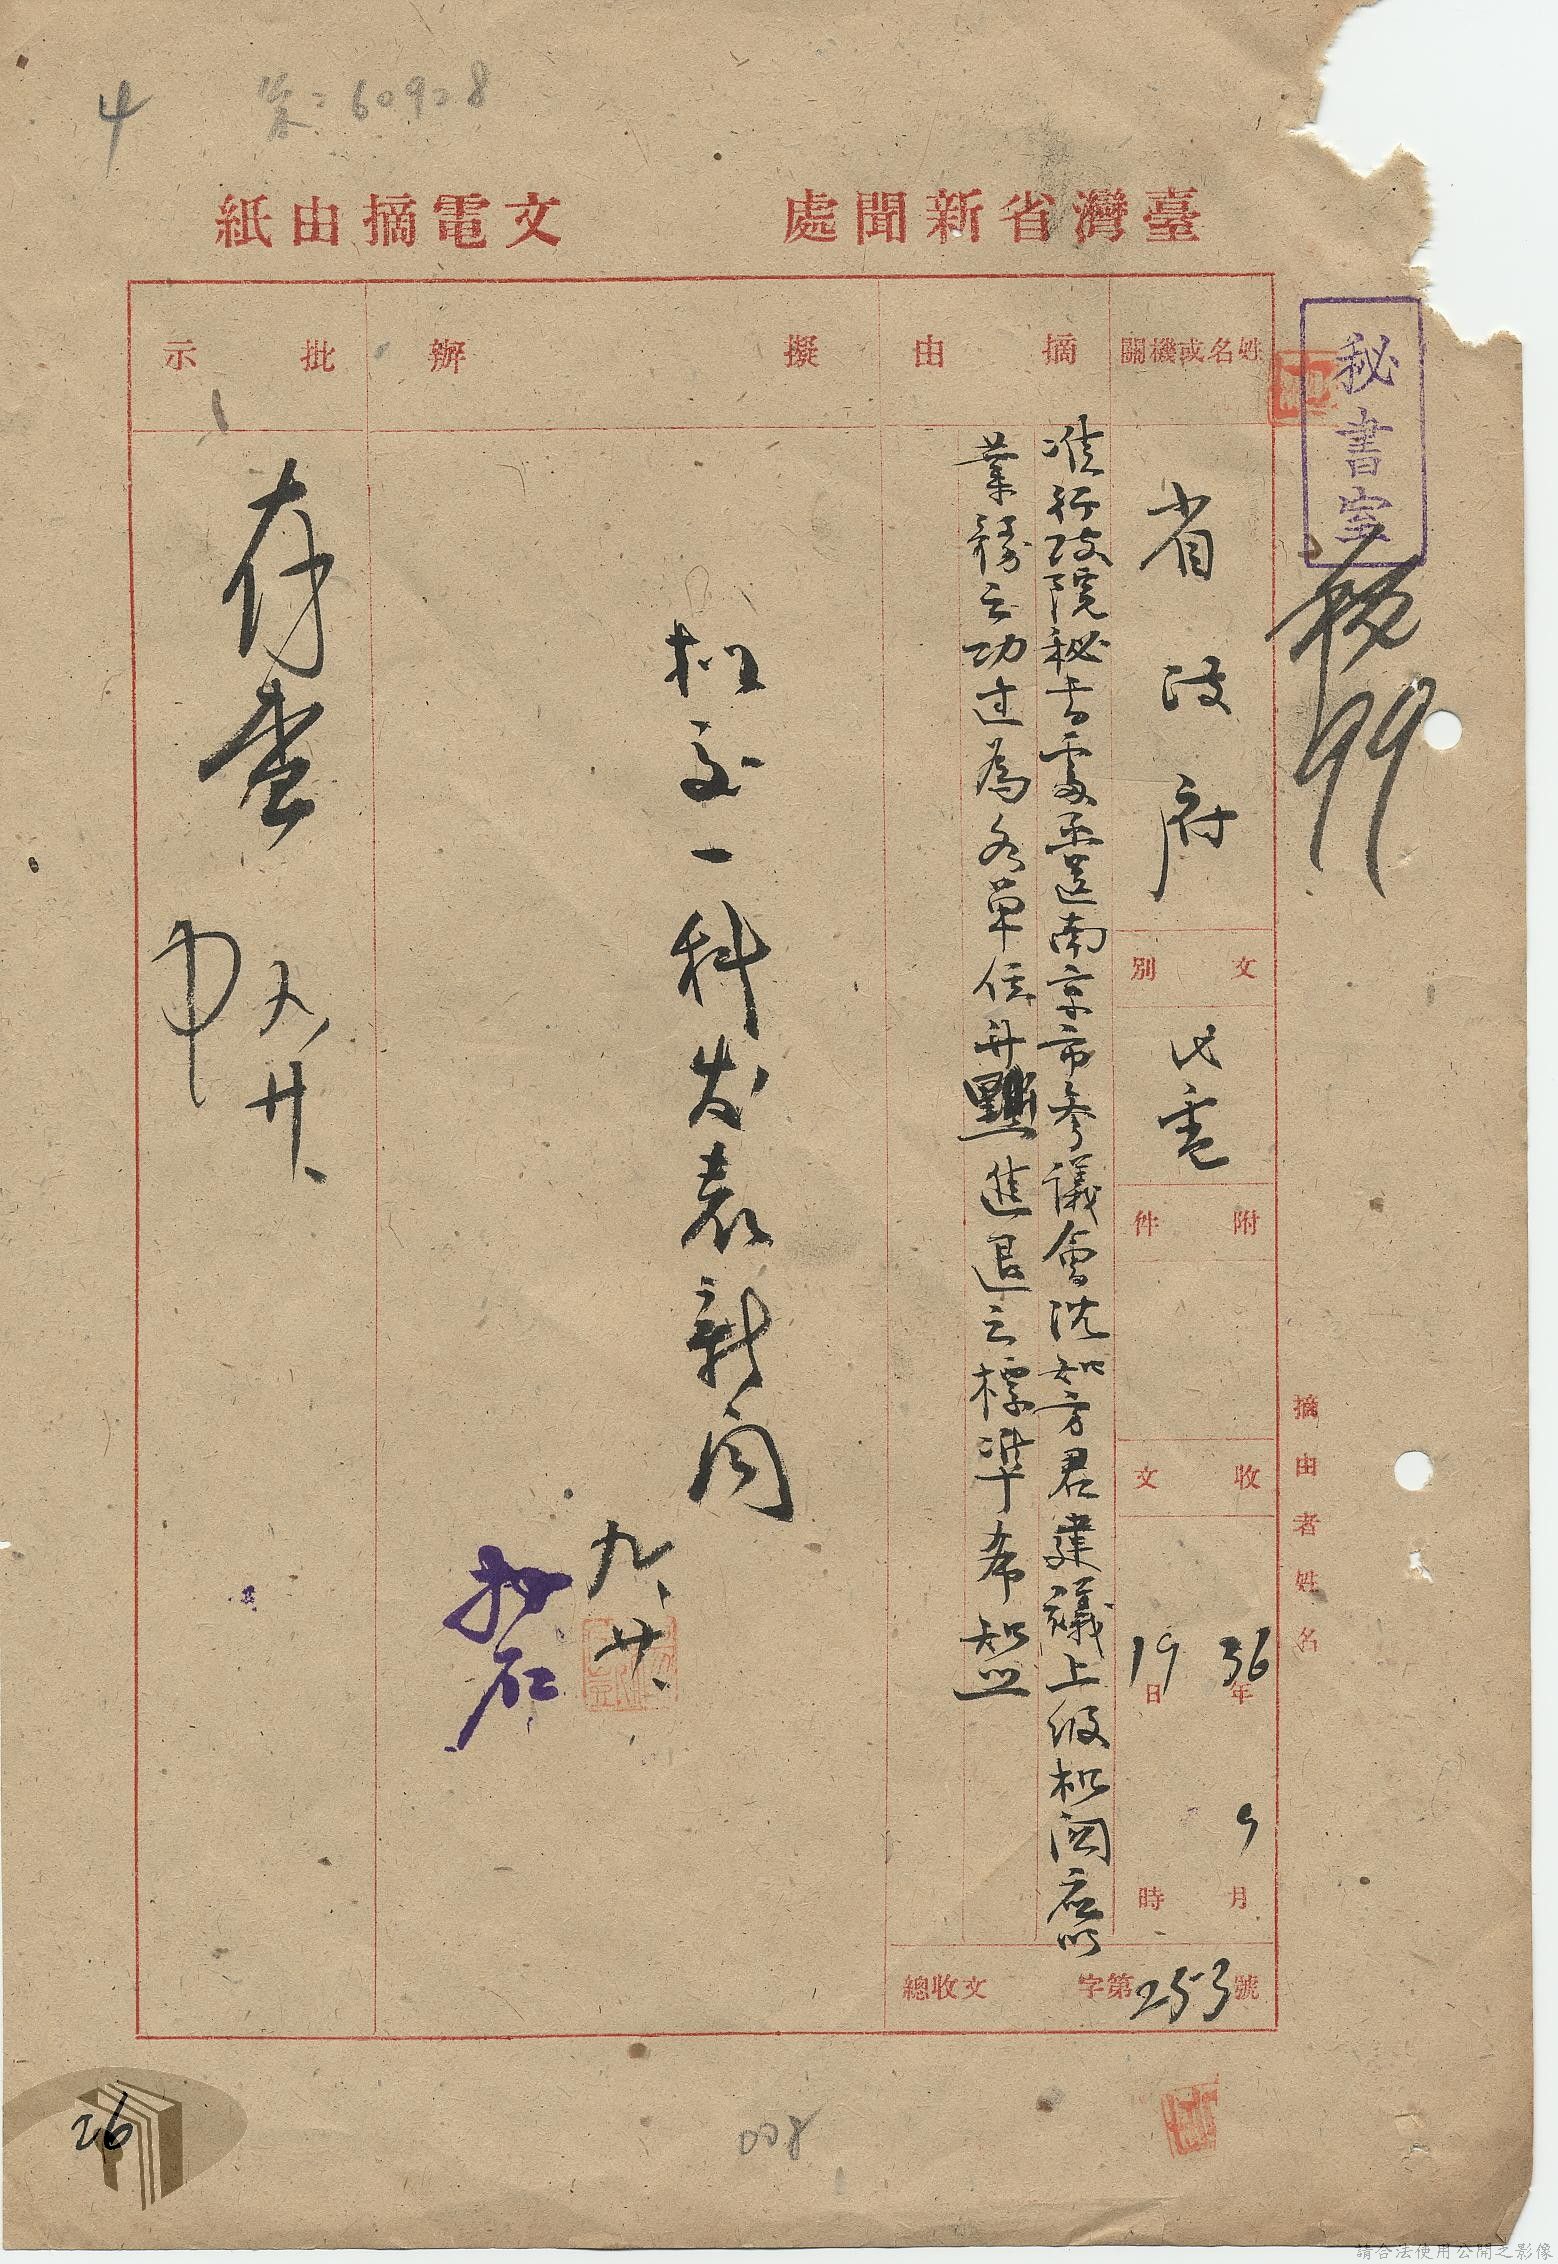 4 第二60908
臺灣省新聞處 文電摘由紙
秘書室
秘
99
姓名或機關
省政府
文別
代電
附件
收文
36年9月19日時
摘由
准行政院秘書處函送南京市參議會沈如方君建議上級机関应以
業務之功過為各單位升黜進退之標準希知照
總收文 字第253號
擬辦
擬交一科发表新闻
九、廿、
批示
存查
九、廿、
摘由者姓名
26
008
請合法使用公開之影像